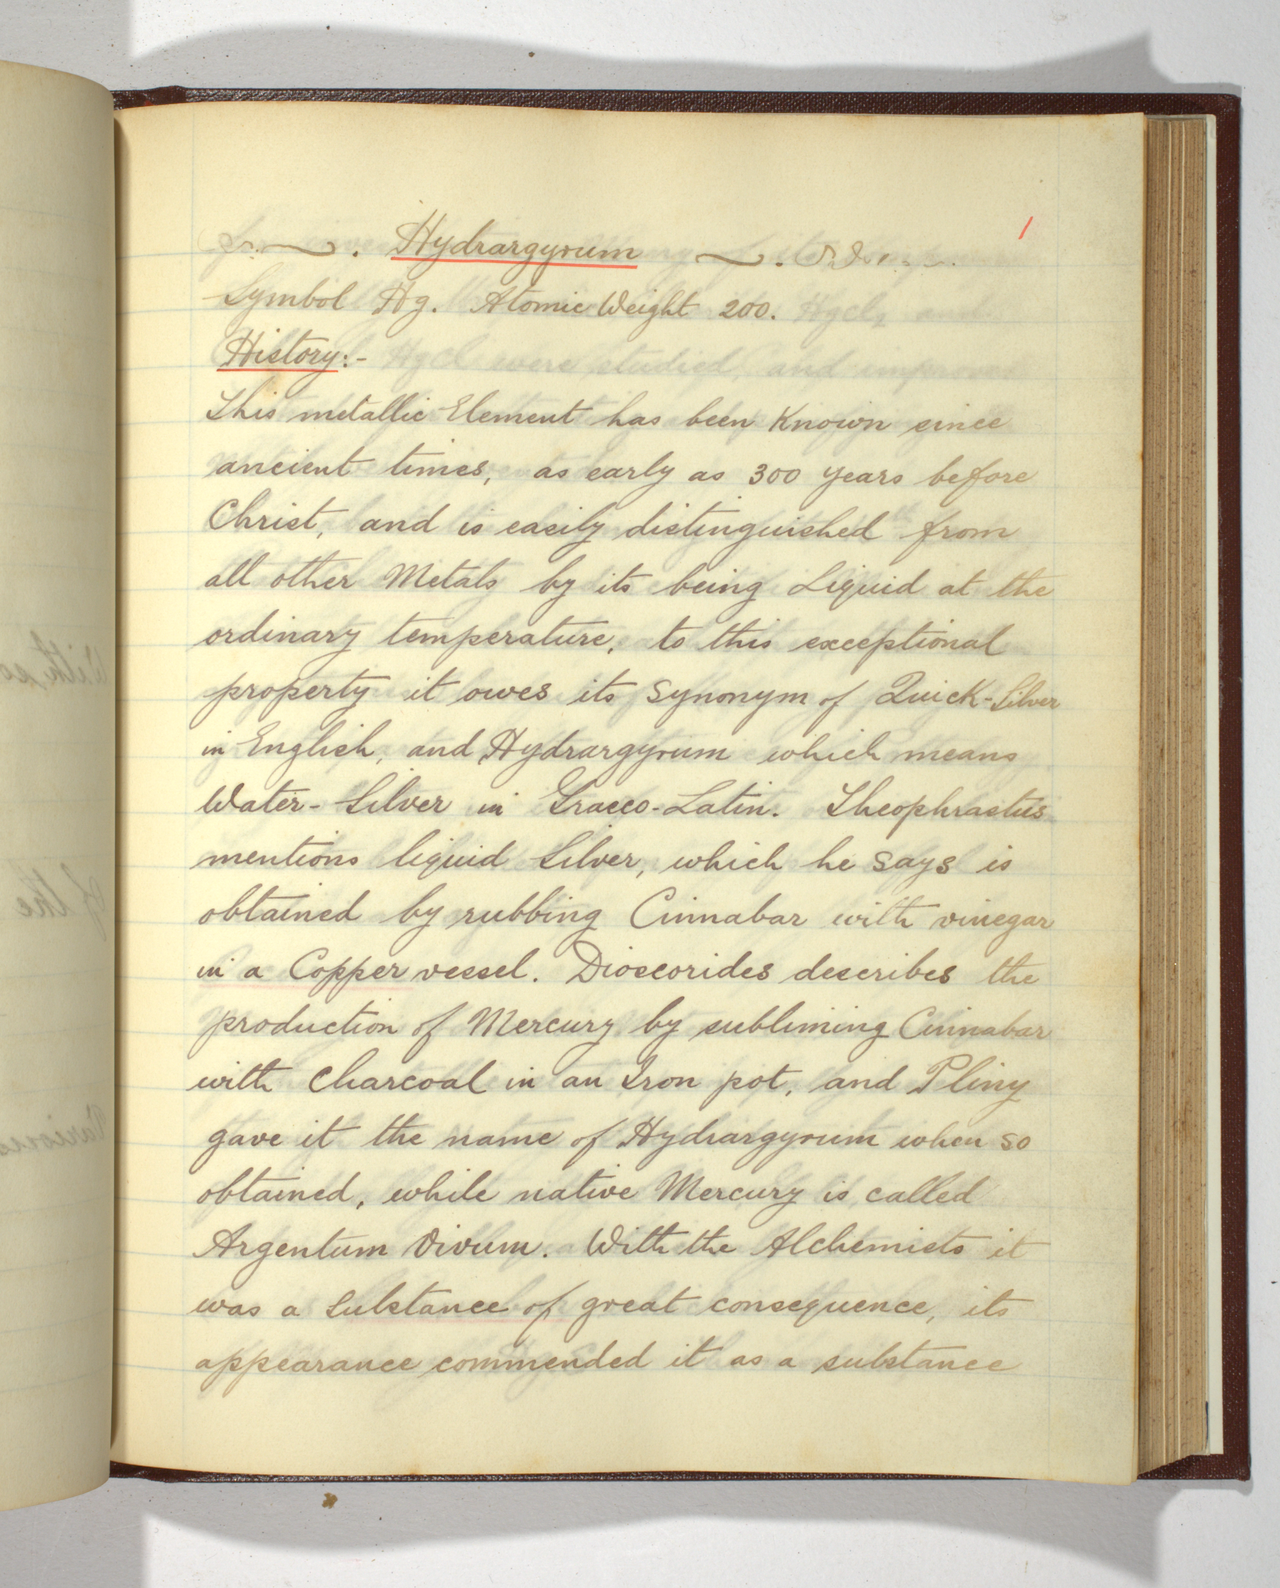 1
Hydrargyrum
Symbol Hg. Atomic Weight 200.
History:-
This metallic Element has been Known since
ancient times, as early as 300 years before
Christ, and is easily distinguished from
all other Metals by its being Liquid at the
ordinary temperature, to this exceptional
property it owes its synonym of Quick-Silver
in English, and Hydrargyrum which means
Water-Silver in Graeco-Latin. Theophrastus
mentions liquid Silver, which he says is
obtained by rubbing Cinnabar with vinegar
in a Copper vessel. Dioscorides describes the
production of Mercury by subliming Cinnabar
with Charcoal in an Iron pot, and Pliny
gave it the name of Hydrargyrum when so
obtained, while native Mercury is called
Argentum Vivum. With the Alchemists it
was a Substance of great consequence, its
appearance commended it as a substance